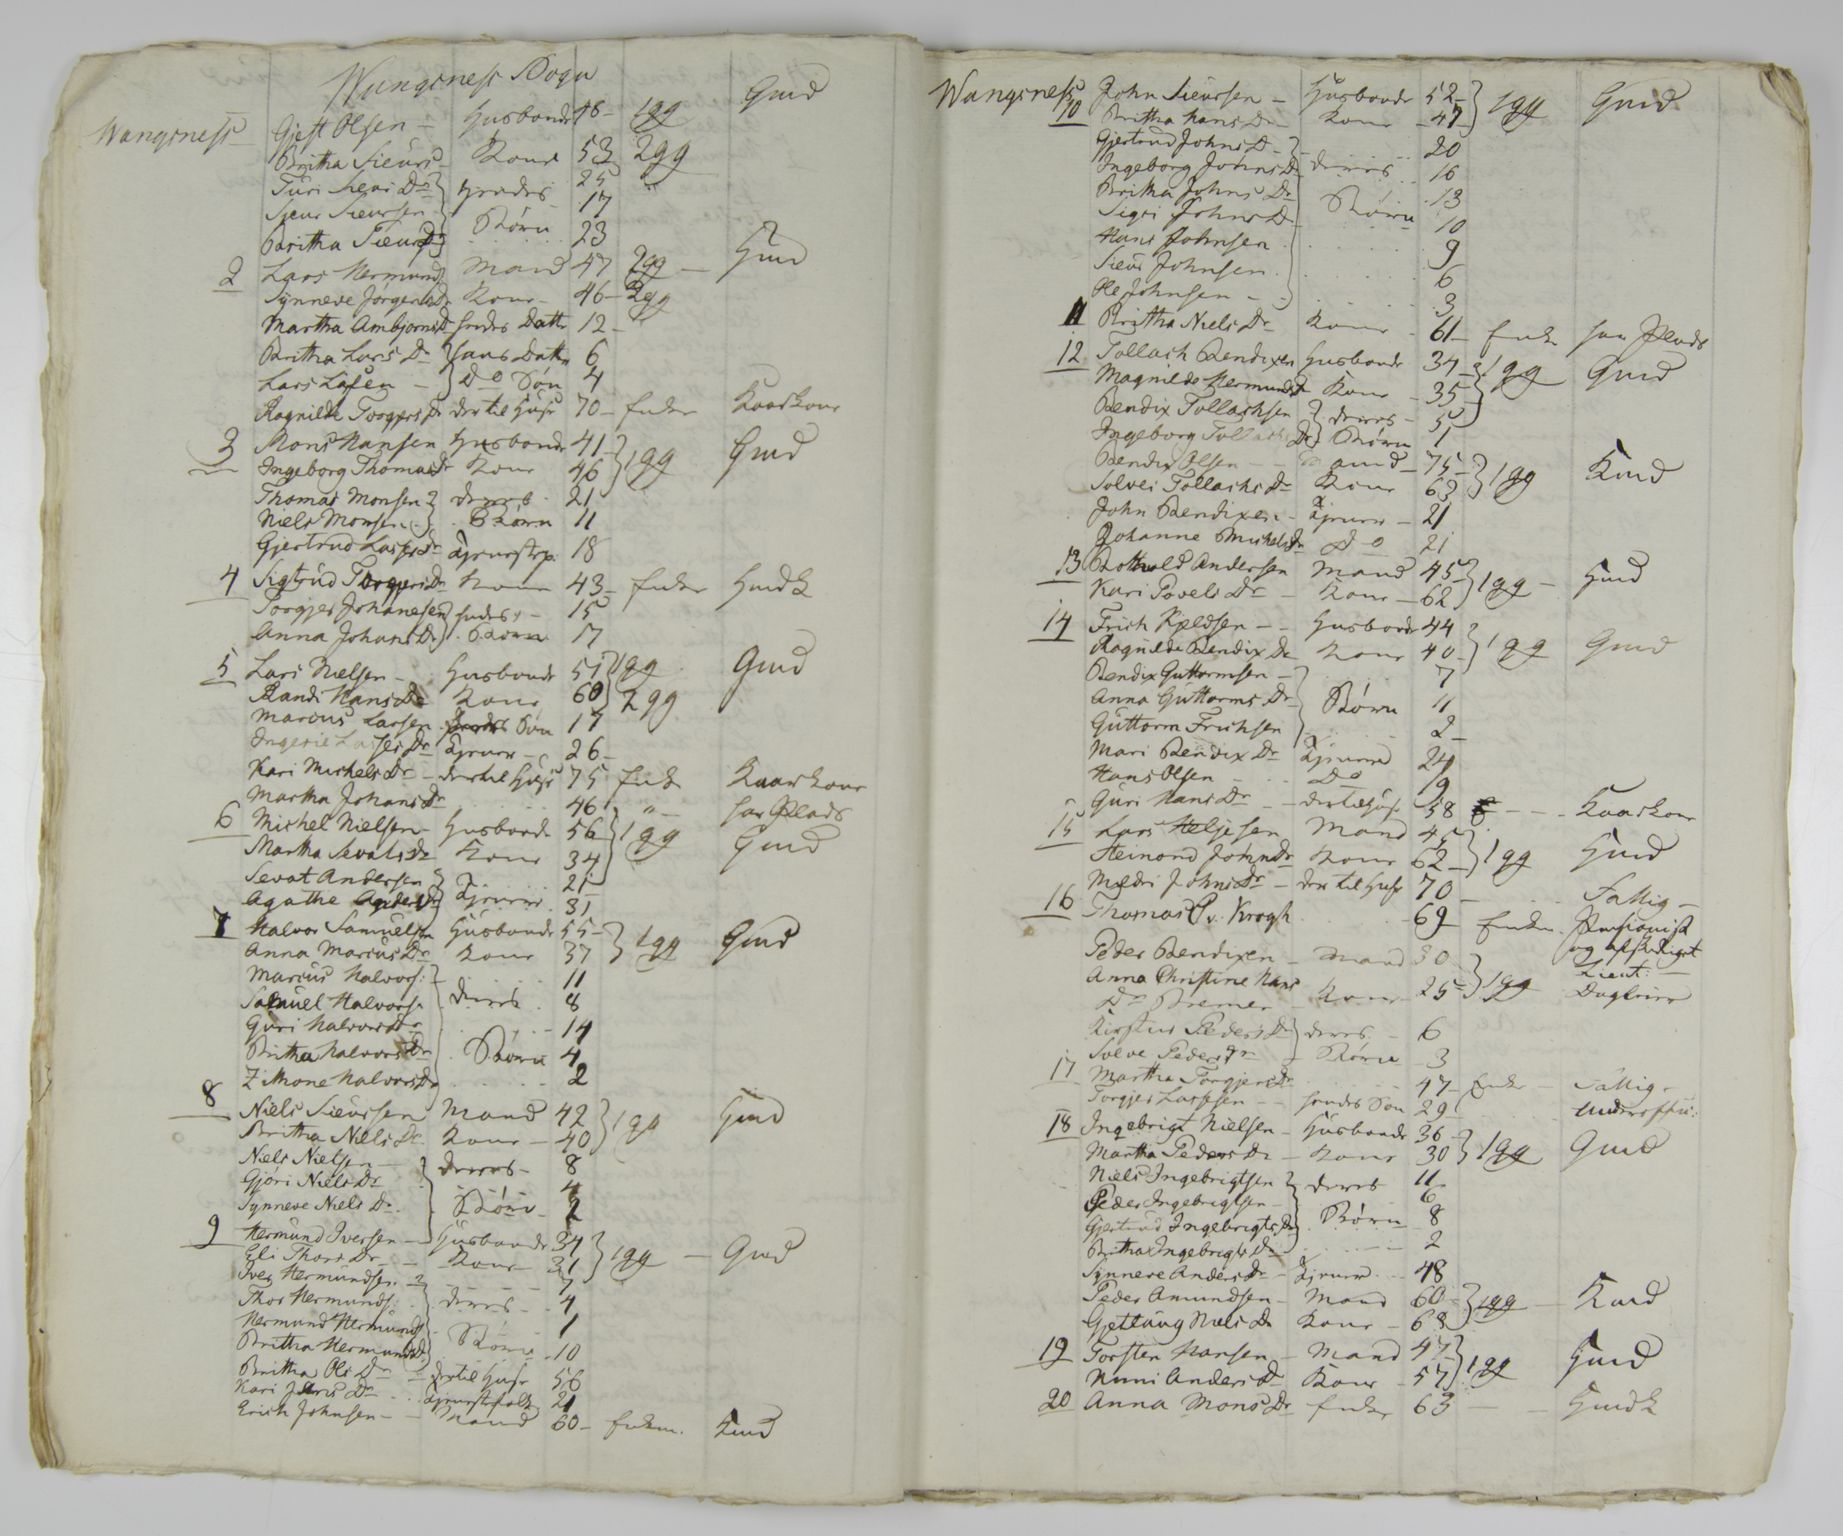 Wangsness Sogn
Wangsness Gjest Olsen – Husbonde 48 – 1 gg Gmd
Britha Sieurs – Kone 53 2 gg
Turi Sieurs Dr hendes 25
Sieur Sieursen Børn 17
Britha Sieurs D 23
2 Lars Hermunds Mand 47 2 gg – Hmd
Synneve Jørgens Dr Kone – 46 – 2 gg
Martha Ambjørns D hendes Datter 12 –
Britha Lars Dr hans Datter 6
Lars Larsen – Do Søn 4
Ragnilde Torgers Dr der til Huse 70 – Enke Kaarkone
3 Mons Hansen Husbonde 41 1 gg Gmd
Ingeborg Thomas Dr Kone 46
Thomas Monsen deres 21
Niels Monsen Børn 11
Gjertrud Lasses Dr Tjenestep. 18
4 Sigtrud Torgiers Dr Kone 43 – Enke Hmdk
Torgjer Johanesen hendes – 15
Anna Johans Dr Børn 17
5 Lars Nielsen – Husbonde 57 1 gg Gmd
Randi Hans Dr Kone 60 2 gg
Marcus Larsen Søn 17
Dr Tjener – 26 –
Kari Michels Dr – der til Huse 75 Enke Kaarkone
Martha Johans Dr 46 " – har Plads
6 Michel Nielsen – Husbonde 56 1 gg Gmd
Martha Sevats Dr Kone 34
Sevat Andersen Tjenere 21
Agathe Anders D 31
7 Halvor Samuelsen Husbonde 55 – 1 gg Gmd
Anna Marcus Dr Kone 37
Marcus Halvors: 11
Samuel Halvors. deres 8
Guri Halvors Dr 14
Britha Halvors Dr Børn 4
Halvors Dr 2
8 Niels Sieursen Mand 42 1 gg Hmd
Britha Niels Dr Kone – 40
Niels Nielsen deres – 8
Gjøri Niels Dr 4
Synneve Niels Dr. Børn – 2
9 Hermund Iversen – Husbonde 34 1 gg – Gmd
Eli Thors Dr – Kone – 31
Iver Hermundsen 7
Thor Hermunds. deres – 4
Hermund Hermunds Børn 1
Britha Hermunds D 10
Britha Ols Dr der til Huse 56
Kari Dr Tjenestefolk 21
Erich Johnsen – Mand 60 – Enkem. Kmd
Wangsness 10 John Sieursen – Husbonde 52 1 gg Gmd
Britha Hans Dr Kone – 47
Gjertrud Johns D – 20
Ingeborg Johns D deres 16
Britha Johns Dr 13
Sigri Johns D Børn 10
Hans Johnsen 9
Sieur Johnsen 6
Ole Johnsen – 3
11 Britha Niels Dr Kone – 61 – Enke har Plads
12 Tollach Bendixen Husbonde 34 1 gg Gmd
Magnilde Hermunds D Kone – 35
Bendix Tollachsen deres – 5
Ingeborg Tollachs Dr Børn 1
Bendix Olsen – Mand – 75 1 gg Kmd
Solvei Tollachs Dr Kone 63
John Bendixen – Tjener – 21
Johanne Michels Dr Do 21
13 Bothold Andersen Mand 45 1 gg – Hmd
Kari Povels Dr – Kone – 62
14 – Husbonde 44 1 gg Gmd
Ragnilde Bendix Dr Kone 40
Bendix Guttormsen – 7
Anna Guttorms Dr Børn 11
Guttorm 2 –
Mari Bendix Dr Tjenere 24
Hans Olsen – Do 19
Guri Hans Dr – der til Huse 58 – Kaarkone
15 Lars Heljesen Mand 45 1 gg Hmd
Steinond Johns Dr Kone 62
Johns Dr – der til Huse 70 – Fattig –
16 Thomas P. v. Krogh 69 – Enkem. Pensionist
og afskediget
Lieut: –
Peder Bendixen – Mand 30 1 gg Dagleier
Anna Christine Hans
Dr Bremer – Kone 25
Kirstine Peders D deres – 6
Solve Peders Dr – Børn 3
17 Martha Torgjers Dr 47 – Enke – Fattig –
Torgjer Larssen – hendes Søn 29
18 Ingebrigt Nielsen – Husbonde 36 1 gg Gmd
Martha Peders Dr – Kone 30
Niels Ingebrigtsen deres 11
Peder Ingebrigtsen – 6
Gjertrud Ingebrigts Dr Børn – 8
Britha Ingebrigts Dr – 2
Synneve Anders Dr – Tjener – 48
Peder Amundsen – Mand 60 1 gg – Kmd
Gjetlaug Niels Dr Kone – 68
19 Torsten Hansen – Mand 47 1 gg Hmd
Nuni Anders D Kone – 57
20 Anna Mons Dr Enke 63 – – Hmdk